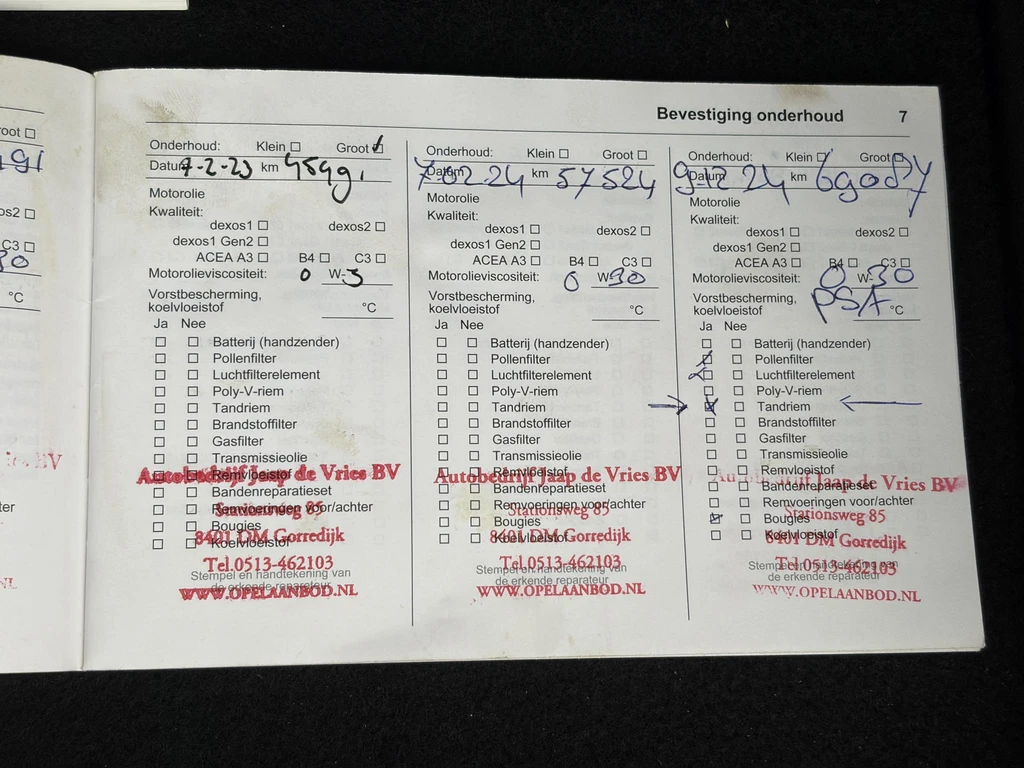 Bevestiging onderhoud 7
Groot
dexos2
C3
°C
Onderhoud: Klein Groot
Datum 7-2-23 km
Motorolie
Kwaliteit:
dexos1 dexos2
dexos1 Gen2
ACEA A3 B4 C3
Motorolieviscositeit: 0 W-3
Vorstbescherming,
koelvloeistof °C
Ja Nee
Batterij (handzender)
Pollenfilter
Luchtfilterelement
Poly-V-riem
Tandriem
Brandstoffilter
Gasfilter
Transmissieolie
Remvloeistof
Bandenreparatieset
Remvoeringen voor/achter
Bougies
Koelvloeistof
Stempel en handtekening van
de erkende reparateur
Autobedrijf Jaap de Vries BV
Stationsweg 85
8401 DM Gorredijk
Tel.0513-462103
WWW.OPELAANBOD.NL
Onderhoud: Klein Groot
Datum 7-02-24 km 57524
Motorolie
Kwaliteit:
dexos1 dexos2
dexos1 Gen2
ACEA A3 B4 C3
Motorolieviscositeit: 0 W-30
Vorstbescherming,
koelvloeistof °C
Ja Nee
Batterij (handzender)
Pollenfilter
Luchtfilterelement
Poly-V-riem
Tandriem
Brandstoffilter
Gasfilter
Transmissieolie
Remvloeistof
Bandenreparatieset
Remvoeringen voor/achter
Bougies
Koelvloeistof
Stempel en handtekening van
de erkende reparateur
Autobedrijf Jaap de Vries BV
Stationsweg 85
8401 DM Gorredijk
Tel.0513-462103
WWW.OPELAANBOD.NL
Onderhoud: Klein Groot
Datum 9-12 24 km
Motorolie
Kwaliteit:
dexos1 dexos2
dexos1 Gen2
ACEA A3 B4 C3
Motorolieviscositeit: 0 W-30
Vorstbescherming, PSA
koelvloeistof °C
Ja Nee
Batterij (handzender)
Pollenfilter
Luchtfilterelement
Poly-V-riem
Tandriem
Brandstoffilter
Gasfilter
Transmissieolie
Remvloeistof
Bandenreparatieset
Remvoeringen voor/achter
Bougies
Koelvloeistof
Stempel en handtekening van
de erkende reparateur
Autobedrijf Jaap de Vries BV
Stationsweg 85
8401 DM Gorredijk
Tel.0513-462103
WWW.OPELAANBOD.NL